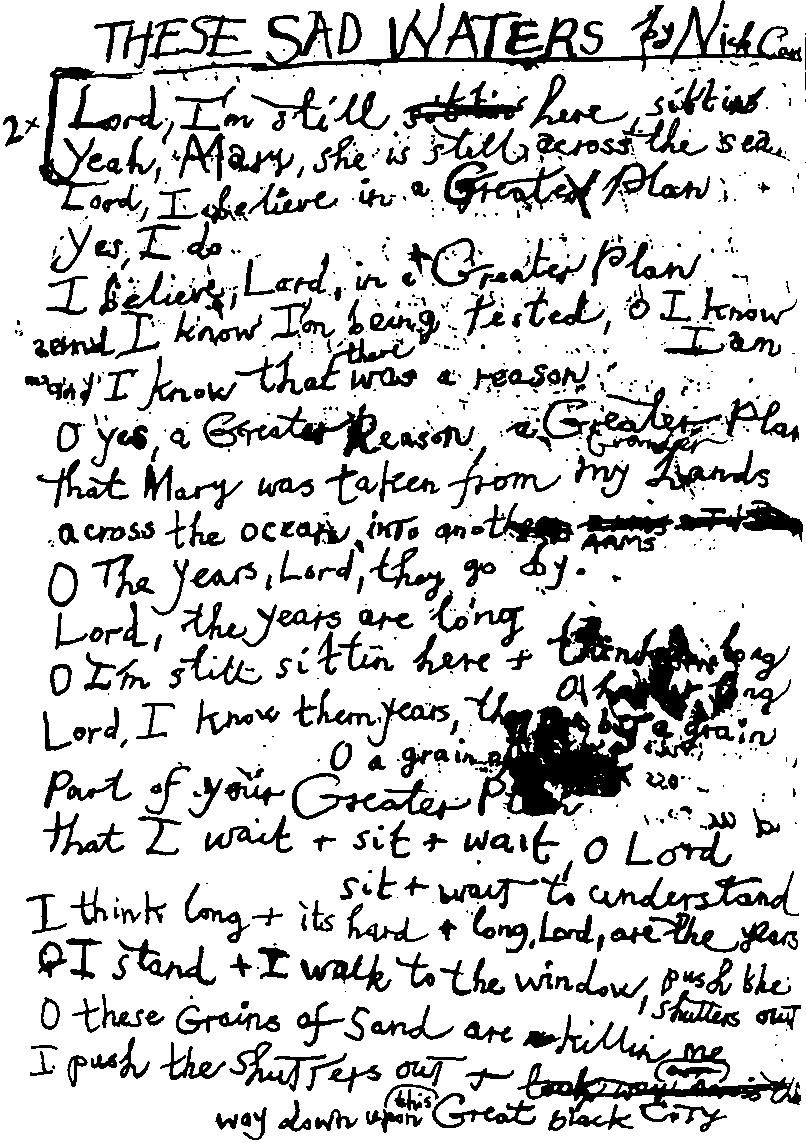 THESE SAD WATERS by Nick Cave
2x Lord, I'm still here, sittin
Yeah, Mary, she is still across the sea
Lord, I believe in a Greater Plan
Yes, I do
I believe, Lord, in a Greater Plan
and I know I'm being tested, O I know
I am
and I know that there was a reason
O yes, a Greater Reason, a Greater Plan
Grander
that Mary was taken from my hands
across the ocean, into another
ARMS
O The years, Lord, they go by.
Lord, the years are long
O I'm still sittin here + long
O long
Lord, I know them years, but a grain
O a grain
Part of your Greater Plan
that I wait + sit + wait, O Lord
sit + wait to understand
I think long + its hard + long, Lord, are the years
O I stand + I walk to the window, push the
shutters out
O these Grains of Sand are killin me
I push the shutters out +
way down upon this Great black CITY